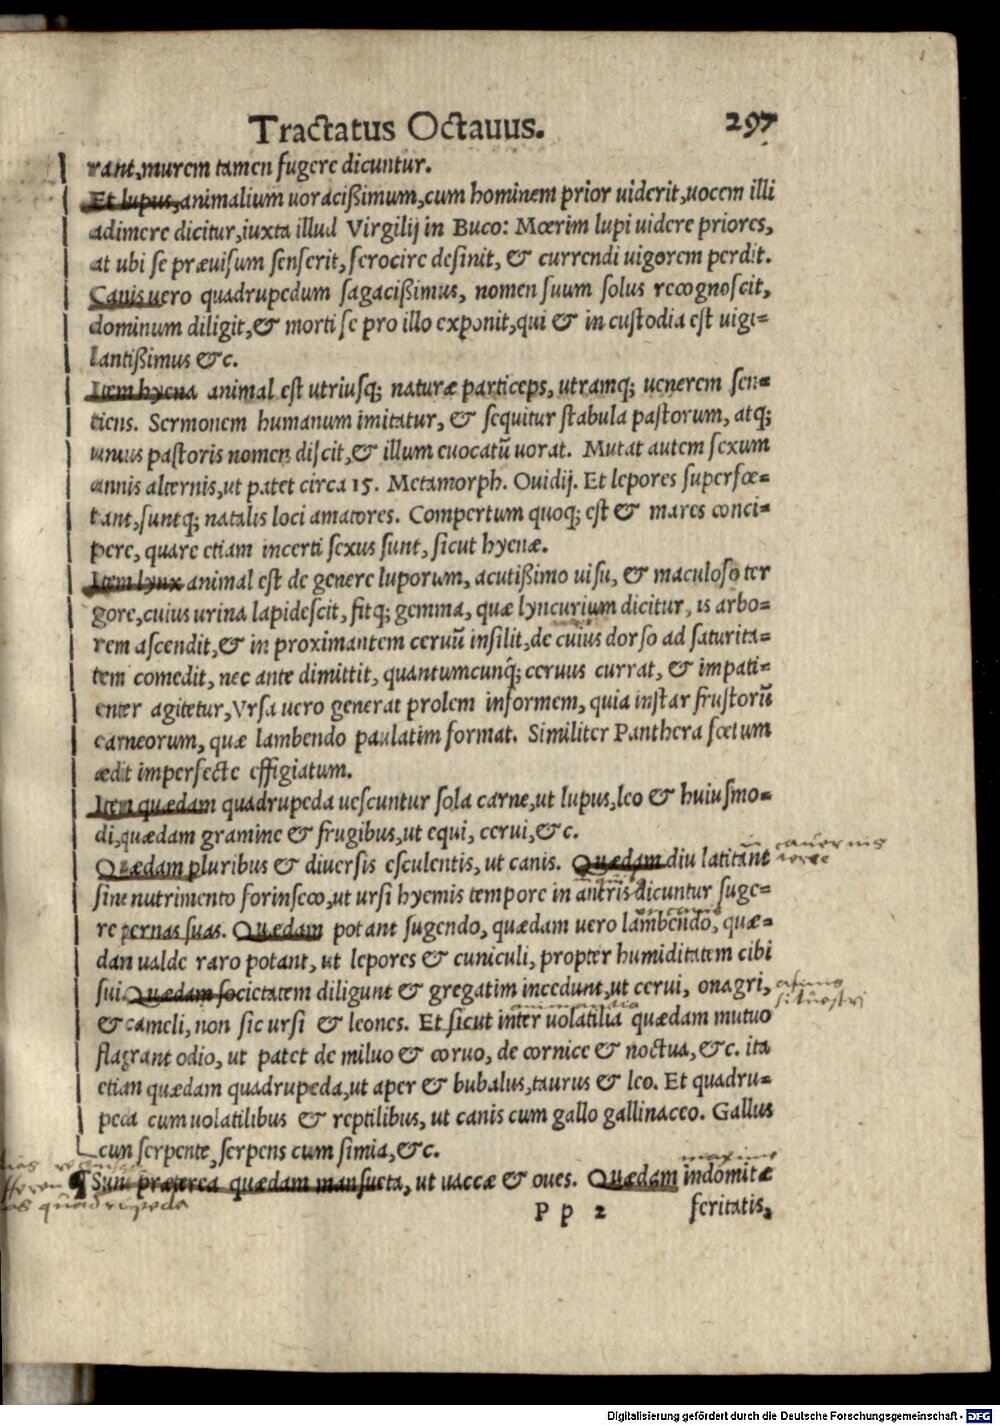 Tractatus Octauus. 297
rant,murem tamen fugere dicuntur.
Et lupus,animalium uoracißimum,cum hominem prior uiderit,uocem illi
adimere dicitur,iuxta illud Virgilij in Buco: Mœrim lupi uidere priores,
at ubi se præuisum senserit, ferocire desinit, & currendi uigorem perdit.
Canis uero quadrupedum sagacißimus, nomen suum solus recognoscit,
dominum diligit,& morti se pro illo exponit,qui & in custodia est uigi=
lantißimus &c.
Item hyena animal est utriusq; naturæ particeps, utramq; uenerem sen=
tiens. Sermonem humanum imitatur, & sequitur stabula pastorum, atq;
unius pastoris nomen discit,& illum euocatū uorat. Mutat autem sexum
annis alternis,ut patet circa 15. Metamorph. Ouidij. Et lepores superfœ=
tant,suntq; natalis loci amatores. Compertum quoq; est & mares conci=
pere, quare etiam incerti sexus sunt, sicut hyenæ.
Item lynx animal est de genere luporum, acutißimo uisu, & maculoso ter
gore,cuius urina lapidescit, fitq; gemma, quæ lyncurium dicitur, is arbo=
rem ascendit,& in proximantem ceruū insilit,de cuius dorso ad saturita=
tem comedit, nec ante dimittit, quantumcunq́; ceruus currat, & impati=
enter agitetur,Vrsa uero generat prolem informem, quia instar frustorū
carneorum, quæ lambendo paulatim format. Similiter Panthera fœtum
ædit imperfecte effigiatum.
Item quædam quadrupeda uescuntur sola carne,ut lupus,leo & huiusmo=
di,quædam gramine & frugibus,ut equi, cerui,&c.
in cauernis
Quædam pluribus & diuersis esculentis, ut canis. Quædam diu latitant terre
sine nutrimento forinseco,ut ursi hyemis tempore in antris dicuntur suge=
re pernas suas. Quædam potant sugendo, quædam uero lambendo, quæ=
dan ualde raro potant, ut lepores & cuniculi, propter humiditatem cibi
sui.Quædam societatem diligunt & gregatim incedunt,ut cerui, onagri, asinus
siluestri
& cameli, non sic ursi & leones. Et sicut inter uolatilia quædam mutuo
flagrant odio, ut patet de miluo & coruo, de cornice & noctua, &c. ita
etian quædam quadrupeda,ut aper & bubalus,taurus & leo. Et quadru=
peda cum uolatilibus & reptilibus, ut canis cum gallo gallinaceo. Gallus
cun serpente, serpens cum simia,&c.
maxime
¶ Sunt præterea quædam mansueta, ut uaccæ & oues. Quædam indomitæ
quadrupeda
P p 2 feritatis,
Digitalisierung gefördert durch die Deutsche Forschungsgemeinschaft - DFG